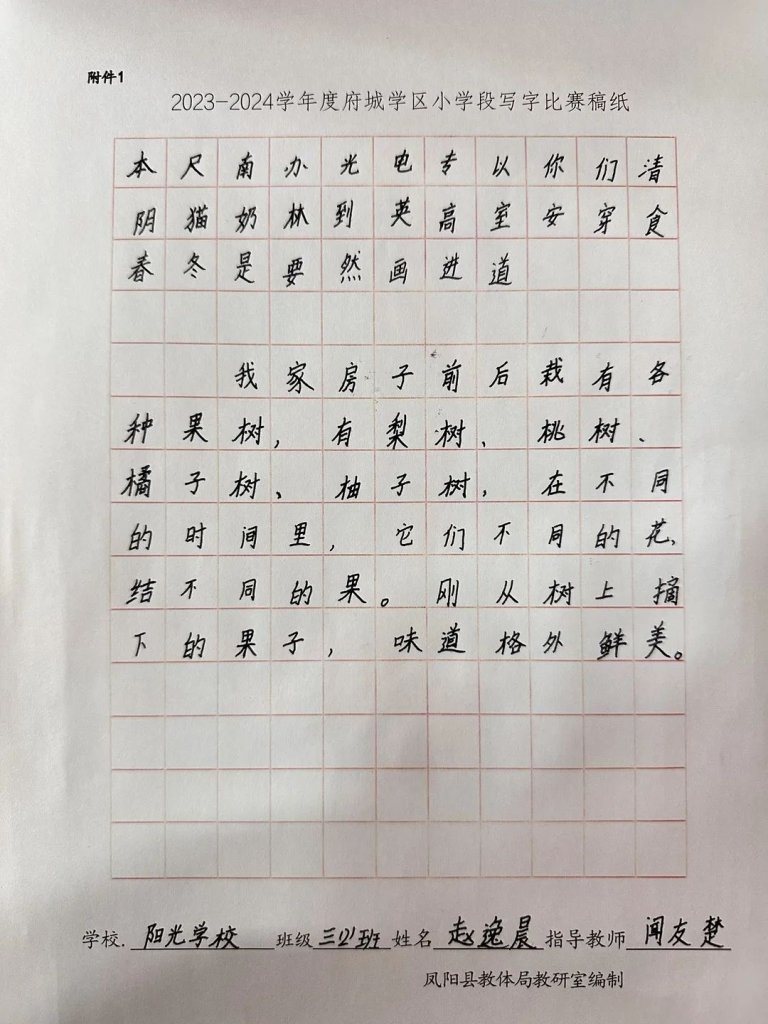 附件1
2023-2024学年度府城学区小学段写字比赛稿纸
本尺南办光电专以你们清
阴猫奶林到英高室安穿食
春冬是要然画进道
我家房子前后栽有各
种果树，有梨树、桃树、
橘子树、柚子树，在不同
的时间里，它们不同的花、
结不同的果。刚从树上摘
下的果子，味道格外鲜美。
学校.阳光学校 班级三(2)班 姓名赵逸晨 指导教师闻友楚
凤阳县教体局教研室编制